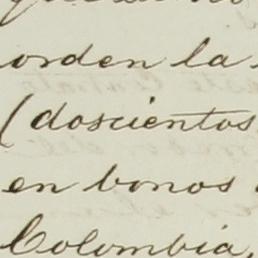 orden la
(doscientos
en bonos
Colombia,